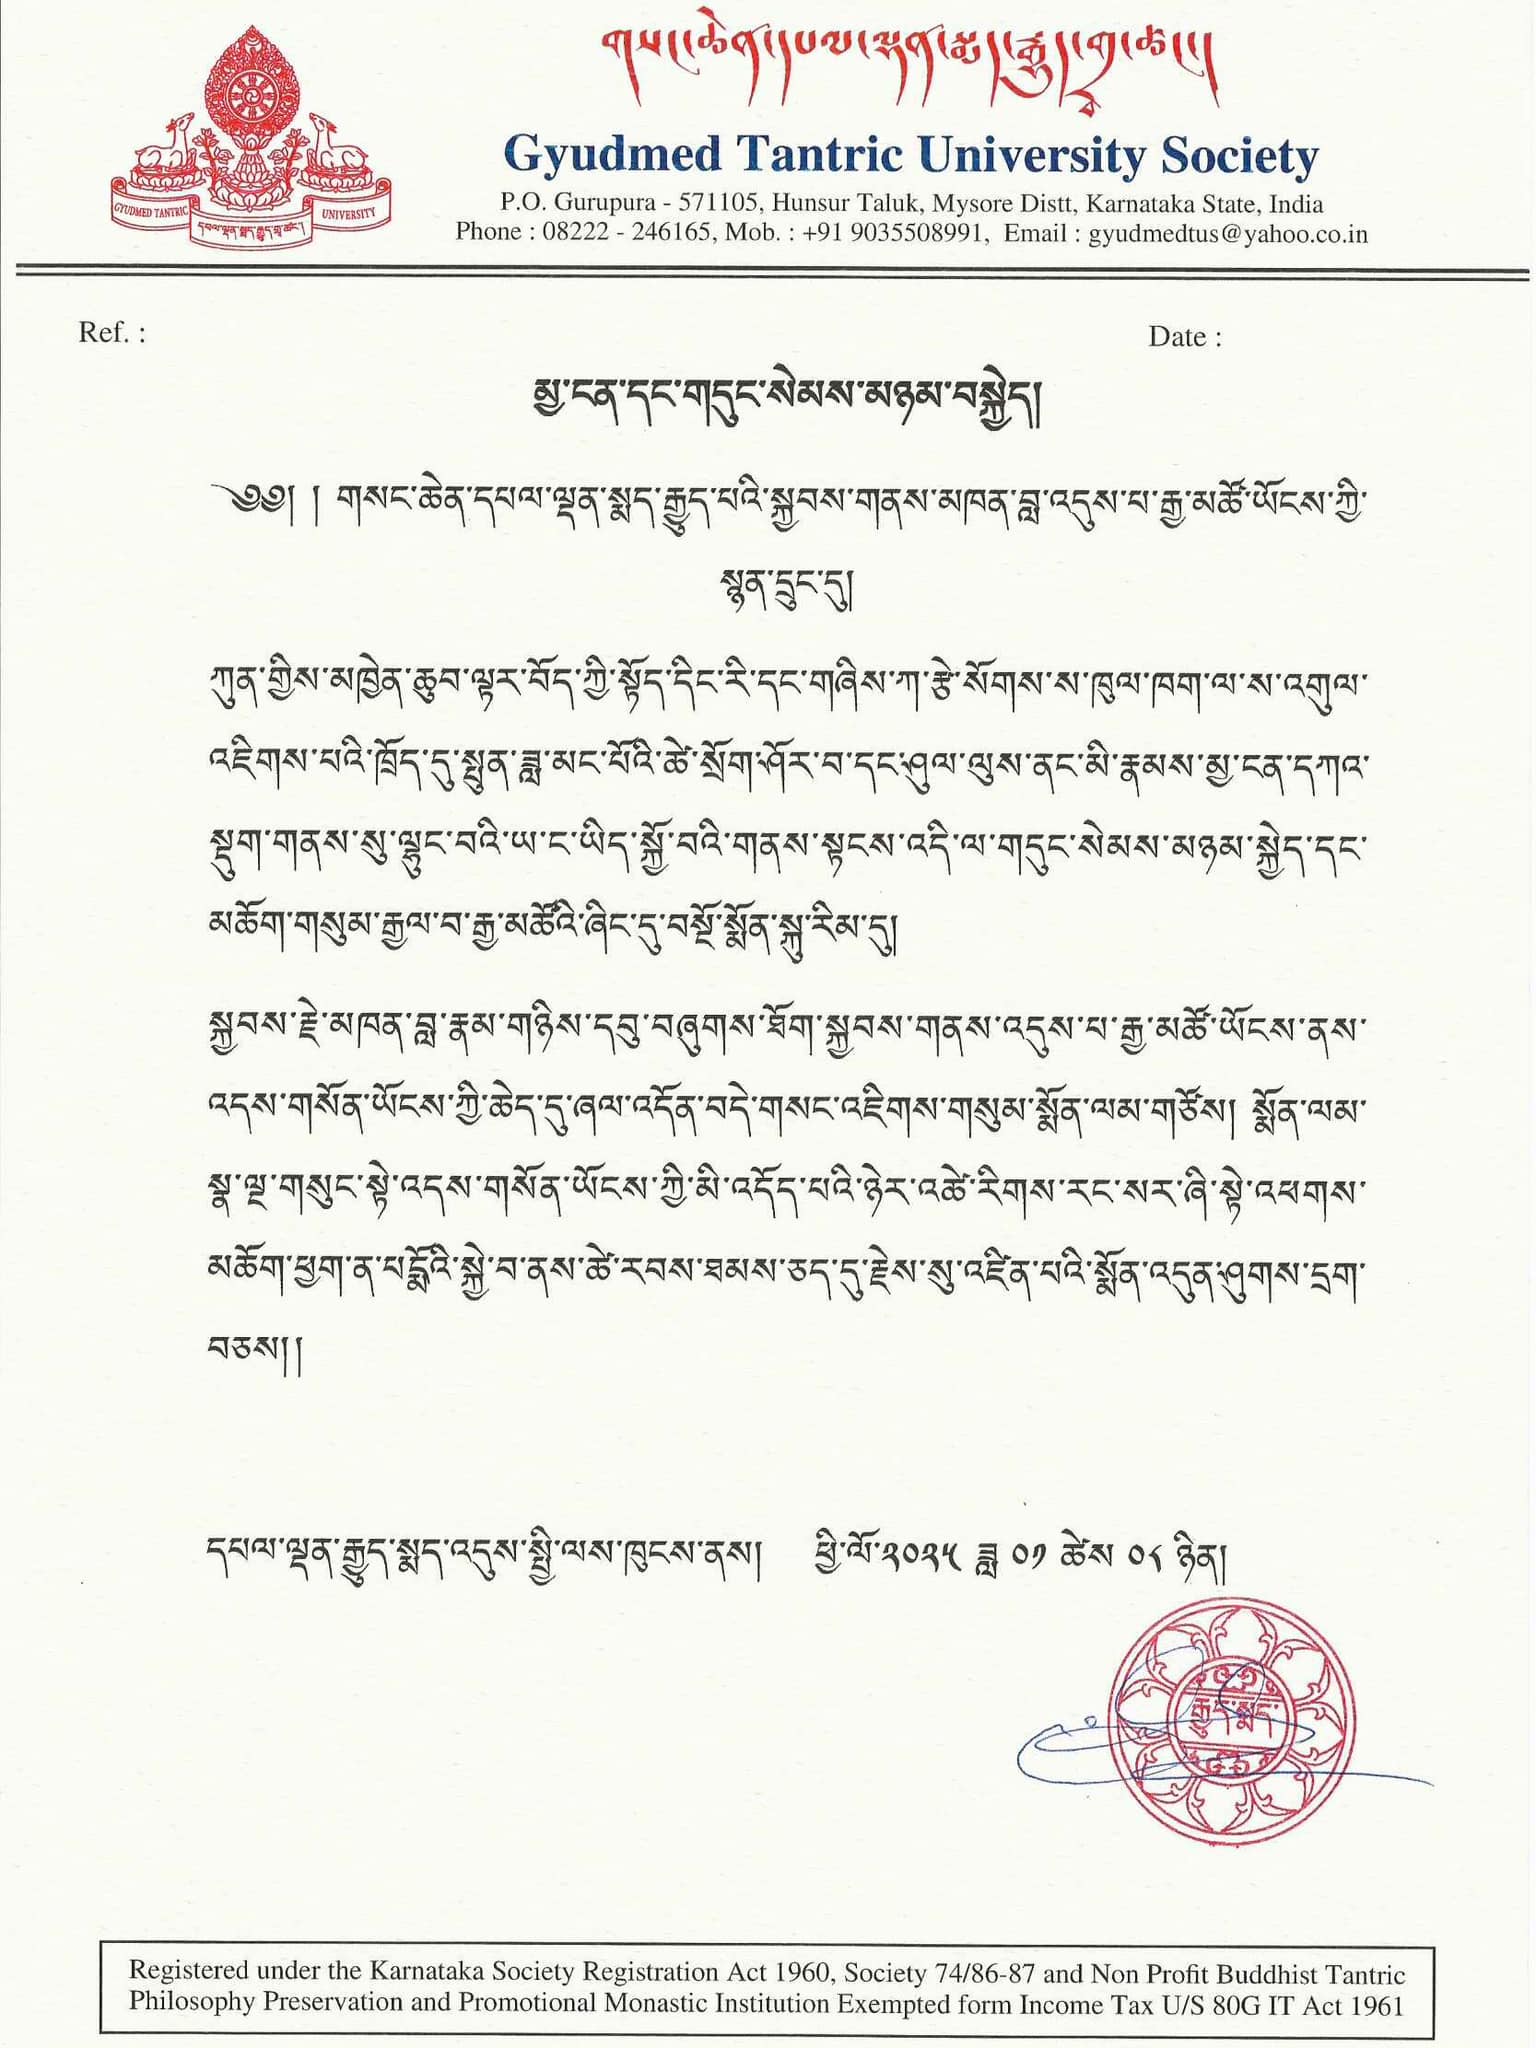 གསང་ཆེན་དཔལ་ལྡན་སྨད་རྒྱུད་གྲྭ་ཚང་།
Gyudmed Tantric University Society
P.O. Gurupura - 571105, Hunsur Taluk, Mysore Distt, Karnataka State, India
Phone : 08222 - 246165, Mob. : +91 9035508991, Email : gyudmedtus@yahoo.co.in
GYUDMED TANTRIC UNIVERSITY
དཔལ་ལྡན་སྨད་རྒྱུད་གྲྭ་ཚང་།
Ref. :
Date :
མྱ་ངན་དང་གདུང་སེམས་མཉམ་བསྐྱེད།
༄༅། ། གསང་ཆེན་དཔལ་ལྡན་སྨད་རྒྱུད་པའི་སྐྱབས་གནས་མཁན་བླ་འདུས་པ་རྒྱ་མཚོ་ཡོངས་ཀྱི་
སྙན་དྲུང་དུ།
ཀུན་གྱིས་མཁྱེན་ཆུབ་ལྟར་བོད་ཀྱི་སྟོད་དིང་རི་དང་གཞིས་ཀ་རྩེ་སོགས་ས་ཁུལ་ཁག་ལ་ས་འགུལ་
འཇིགས་པའི་ཁྲོད་དུ་སྤུན་ཟླ་མང་པོའི་ཚེ་སྲོག་ཤོར་བ་དང་ཤུལ་ལུས་ནང་མི་རྣམས་མྱ་ངན་དཀའ་
སྡུག་གནས་སུ་ལྷུང་བའི་ཡ་ང་ཡིད་སྐྱོ་བའི་གནས་སྟངས་འདི་ལ་གདུང་སེམས་མཉམ་སྐྱེད་དང་
མཆོག་གསུམ་རྒྱལ་བ་རྒྱ་མཚོའི་ཞིང་དུ་བསྔོ་སྨོན་སྐུ་རིམ་དུ།
སྐྱབས་རྗེ་མཁན་བླ་རྣམ་གཉིས་དབུ་བཞུགས་ཐོག་སྐྱབས་གནས་འདུས་པ་རྒྱ་མཚོ་ཡོངས་ནས་
འདས་གསོན་ཡོངས་ཀྱི་ཆེད་དུ་ཞལ་འདོན་བདེ་གསང་འཇིགས་གསུམ་སྨོན་ལམ་གཙོས། སྨོན་ལམ་
སྣ་ལྔ་གསུང་སྟེ་འདས་གསོན་ཡོངས་ཀྱི་མི་འདོད་པའི་ཉེར་འཚེ་རིགས་རང་སར་ཞི་སྟེ་འཕགས་
མཆོག་ཕྱག་ན་པདྨོའི་སྐྱེ་བ་ནས་ཚེ་རབས་ཐམས་ཅད་དུ་རྗེས་སུ་འཛིན་པའི་སྨོན་འདུན་ཤུགས་དྲག་
བཅས།།
དཔལ་ལྡན་རྒྱུད་སྨད་འདུས་སྤྱི་ལས་ཁུངས་ནས། ཕྱི་ལོ་༢༠༢༥ ཟླ ༠༡ ཚེས ༠༨ ཉིན།
རྒྱུད་སྨད་
Registered under the Karnataka Society Registration Act 1960, Society 74/86-87 and Non Profit Buddhist Tantric
Philosophy Preservation and Promotional Monastic Institution Exempted form Income Tax U/S 80G IT Act 1961